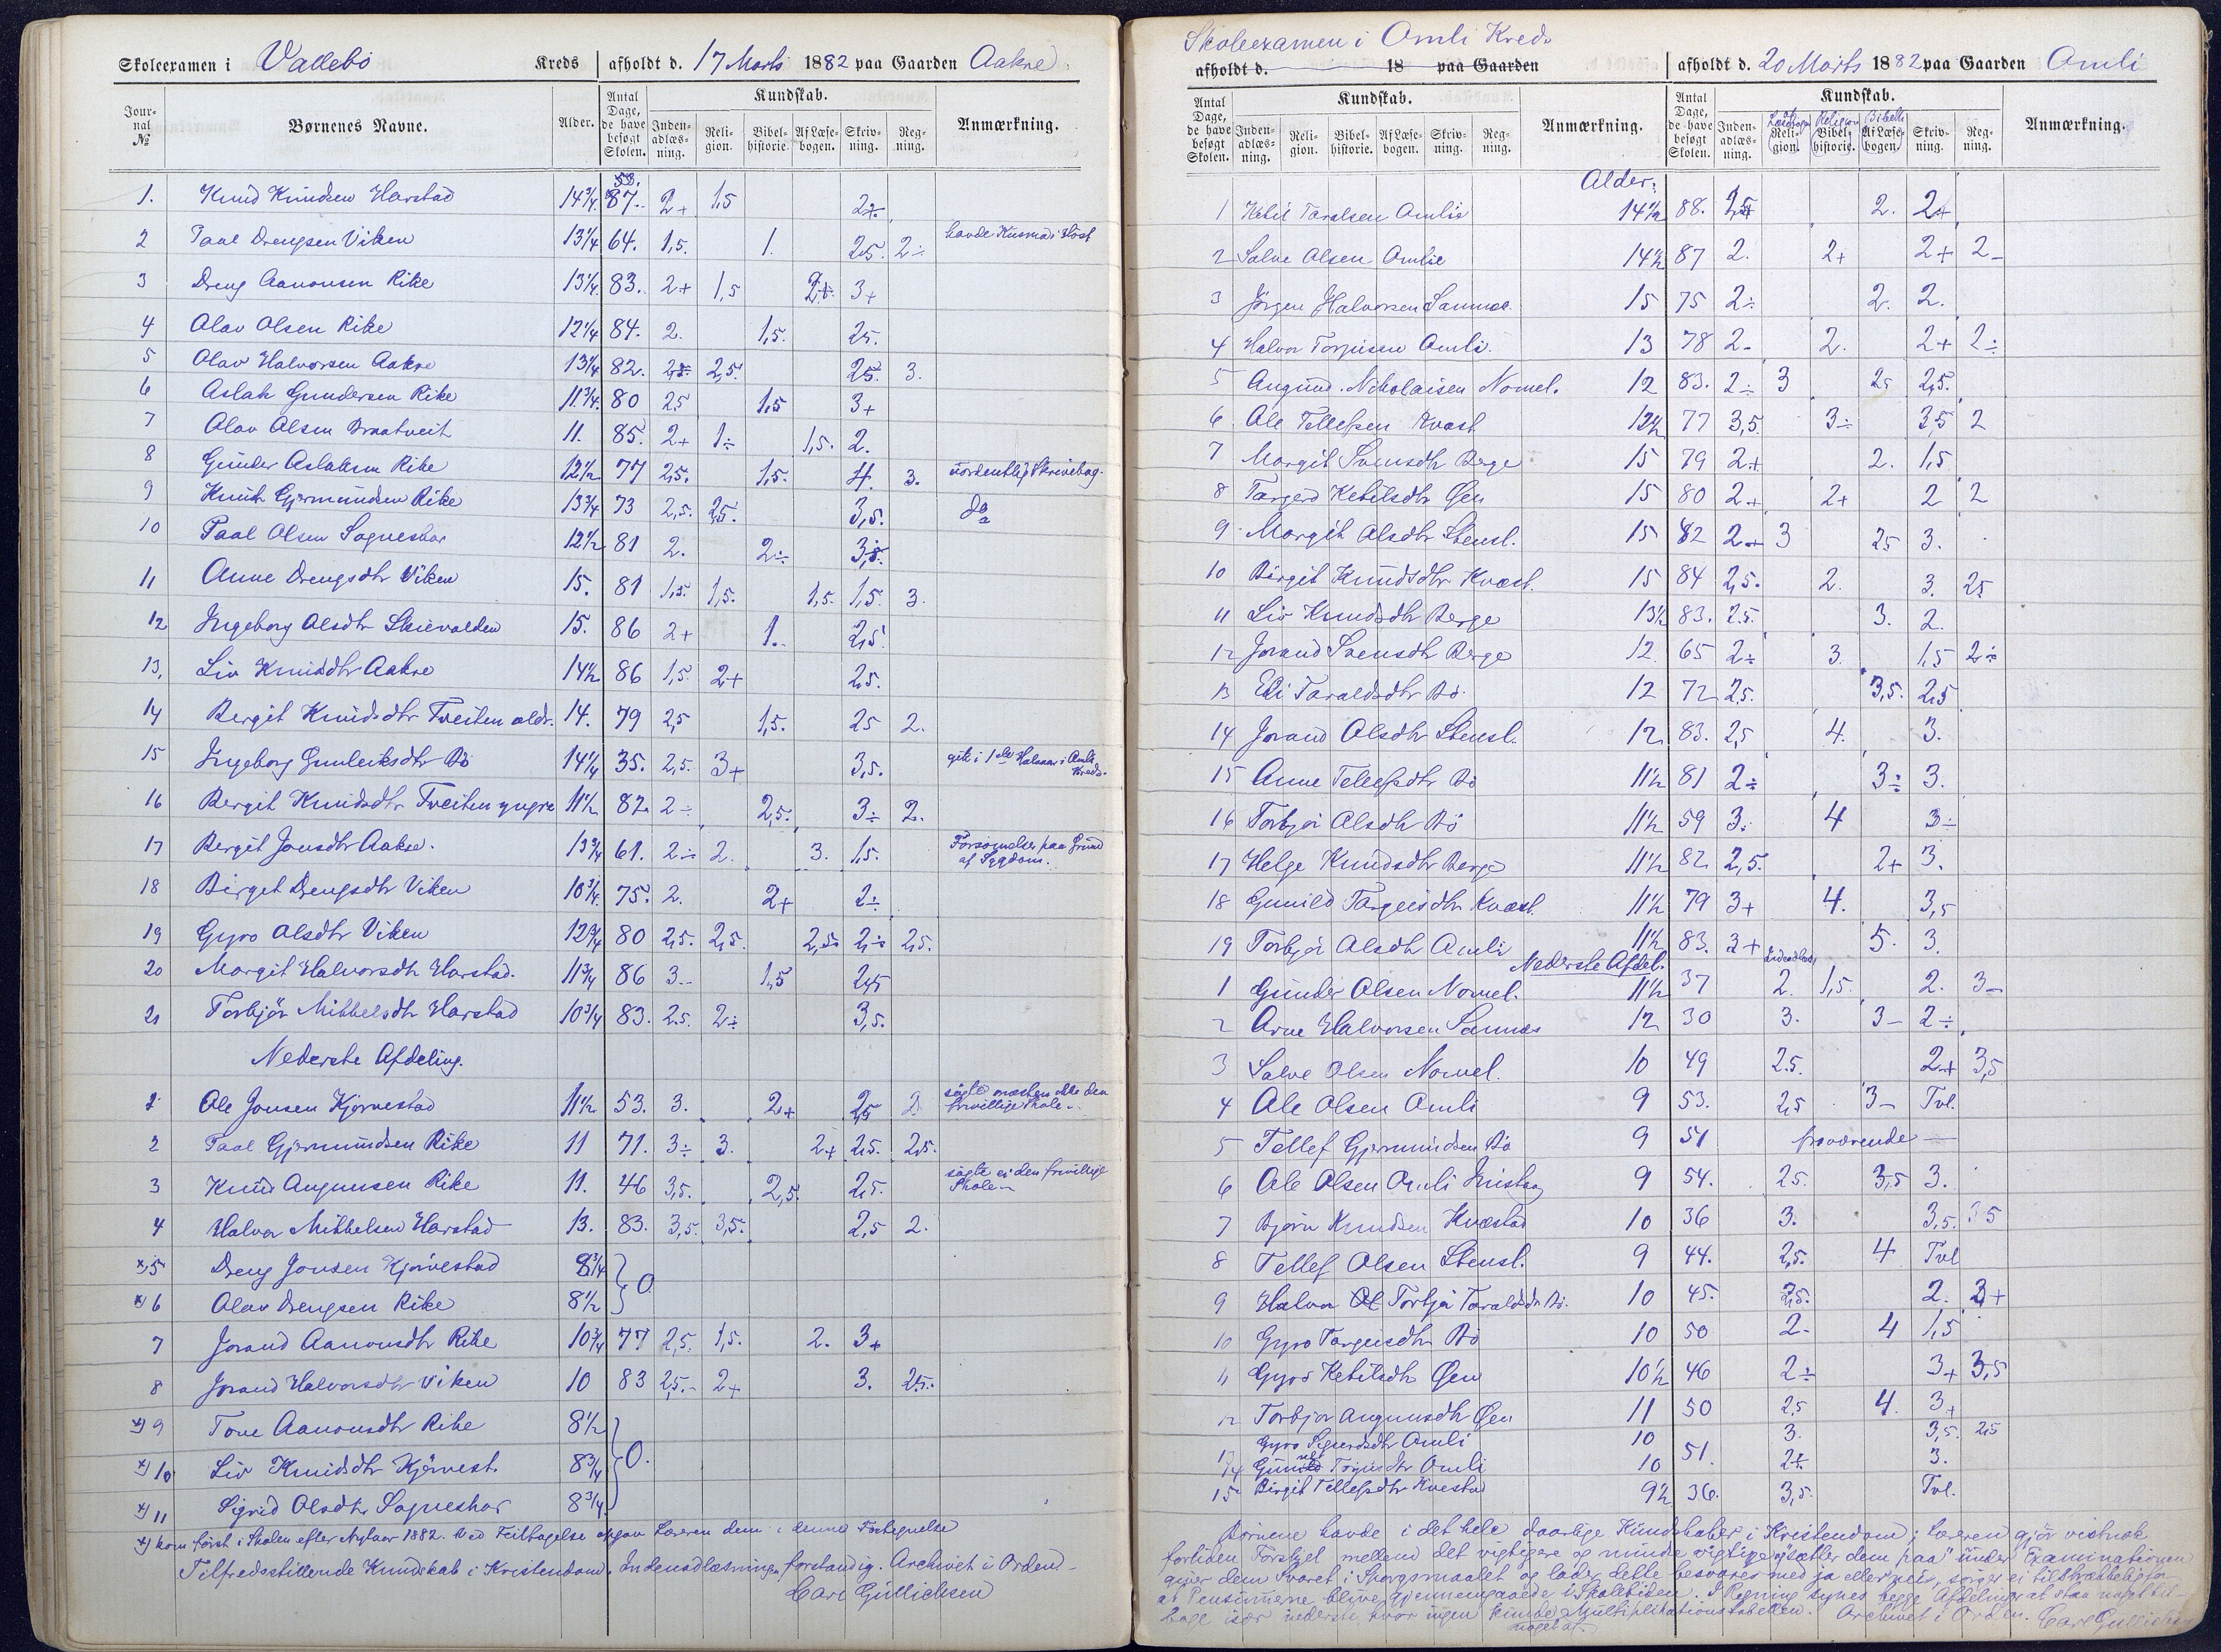 Skoleexamen i Vallebø Kreds afholdt d. 17 Marts 1882 paa Gaarden Aakre
Journal № Børnenes Navne. Alder. Antal Dage, de have besøgt Skolen. Kundskab. Indenadlæsning. Religion. Bibelhistorie. Af Læsebogen. Skrivning. Regning. Anmærkning.
1. Knud Knudsen Harstad 14¾ 87. 58. 2+ 1,5 2+.
2 Paal Drengsen Viken 13¼ 64. 1,5. 1. 2,5. 2÷ havde Kusma i Høst
3 Dreng Aanonsen Rike 13¼ 83. 2+ 1,5 2+. 3+
4 Olav Olsen Rike 12¼ 84. 2. 1,5. 2,5.
5 Olav Halvorsen Aakre 13¼ 82. 2,5. 2,5. 2,5. 3.
6 Aslak Gundersen Rike 11¾. 80 2,5 1,5 3+
7 Olav Olsen Brottveit 11. 85. 2+ 1÷ 1,5. 2.
8 Gunder Aslaksen Rike 12½ 77 2,5. 1,5. 4. 3. uordentlig Skrivebog.
9 Knut Gjermundsen Rike 13¾ 73 2,5. 2,5. 3,5. do
10 Paal Olsen Sagneskar 12½ 81 2. 2÷ 3,5.
11 Anne Drengsdtr Viken 15. 81 1,5. 1,5. 1,5. 1,5. 3.
12 Ingeborg Olsdtr Skievolden 15. 86 2+ 1. 2,5.
13. Liv Knudsdtr Aakre 14½ 86 1,5. 2+ 2,5.
14 Bergit Knudsdtr Tveiten ældr. 14. 79 2,5 1,5. 2,5 2.
15 Ingeborg Gunleiksdtr Bö 14¼ 35. 2,5. 3+ 3,5. gik i 1ste Halvaar i Amli Kreds.
16 Bergit Knudsdtr Tveiten yngre 11½ 82. 2÷ 2,5. 3÷ 2.
17 Bergit Jonsdtr Aakre. 13¾ 61. 2÷ 2. 3. 1,5. Forsømelser paa Grund af Sygdom.
18 Birget Drengsdtr Viken 10¾. 75. 2. 2+ 2÷
19 Gyro Olsdtr Viken 12¾ 80 2,5. 2,5. 2,5. 2,÷ 2,5.
20 Margit Halvorsdtr Harstad. 11¾ 86 3.. 1,5 2,5
21 Torbjør Mikkelsdtr Harstad 10¾ 83. 2,5. 2÷ 3,5.
Nederste Afdeling.
1 Ole Jonsen Kjørvestad 11½ 53. 3. 2+ 2,5 2. søgte næsten ikke den frivillige Skole.
2 Paal Gjermundsen Rike 11 71. 3÷ 3. 2+ 2,5. 2,5.
3 Knud Angunsen Rike 11. 46 3,5. 2,5. 2,5. søgte ei den frivillige Skole
4 Halvor Mikkelsen Harstad 13. 83. 3,5. 3,5. 2,5 2.
x) 5 Dreng Jonsen Kjørvestad 8¾ 0
x) 6 Olav Drengsen Rike 8½
7 Jorand Aanonsdtr Rike 10¾ 77 2,5. 1,5. 2. 3+
8 Jorand Halvorsdtr Viken 10 83 2,5.- 2+ 3. 2,5.
x) 9 Tone Aanonsdtr Rike 8½ 0.
x) 10 Liv Knudsdtr Kjørvest. 8¾
x) 11 Sigrid Olsdtr Sagneskar 8¾
x) kom først i Skolen efter Nytaar 1882. Ved Feiltagelse opgav Læreren dem i denne Fortegnelse
Tilfredsstillende Kundskab i Kristendom, Indenadlæsningen forstandig. Archivet i Orden.
Carl Gullichsen
Skoleexamen i Omli Kreds
afholdt d. 18 paa Gaarden afholdt d. 20 Marts 1882 paa Gaarden Omli
Antal Dage, de have besøgt Skolen. Kundskab. Indenadlæsning. Religion. Bibelhistorie. Af Læsebogen. Skrivning. Regning. Anmærkning. Antal Dage, de have besøgt Skolen. Kundskab. Indenadlæsning. Religion. Bibelhistorie. Af Læsebogen. Skrivning. Regning. Anmærkning.
Alder:
1 Ketil Taralsen Omlie 14½ 88. 2,5 2. 2+
2 Salve Olsen Omlie 14½ 87 2. 2+ 2+ 2-
3 Jørgen Halvorsen Sannes. 15 75 2÷ 2. 2.
4 Halvor Torjusen Omli. 13 78 2- 2. 2+ 2÷
5 Angund. Nikolaisen Nomel. 12 83. 2÷ 3 2,5 2,5.
6 Ole Tellefsen Kvast 12½ 77 3,5. 3÷ 3,5 2
7 Margit Svensdtr Berge 15 79 2+ 2. 1,5
8 Targerd Ketilsdtr Øen 15 80 2+ 2+ 2 2
9 Margit Olsdtr Stensl. 15 82 2+ 3 2,5 3.
10 Birgit Knudsdtr Kvast. 15 84 2,5. 2. 3. 2,5
11 Liv Knudsdtr Berge 13½ 83. 2,5. 3. 2.
12 Jorand Svensdtr Berge 12. 65 2÷ 3. 1,5 2÷
13 Eli Taraldsdtr Bö. 12 72 2,5. 3,5. 2,5
14 Jorand Olsdtr Stensl. 12. 83. 2,5 4. 3.
15 Anne Tellefsdtr Bö 11½ 81 2÷ 3÷ 3.
16 Torbjør Olsdtr Bö 11½ 59 3. 4 3÷
17 Helge Knudsdtr Berge 11½ 82 2,5. 2+ 3.
18 Gunild Targeisdtr Kvast. 11½ 79 3+ 4. 3,5
19 Torbjør Olsdtr Omli 11½ 83. 3+ 5. 3.
Nederste Afdel.
1 Gunder Olsen Nomel. 11½ 37 2. 1,5. 2. 3-
2 Arne Halvorsen Sannes 12 30 3. 3- 2÷
3 Salve Olsen Nomel. 10 49 2,5. 2+ 3,5
4 Ole Olsen Omli 9 53. 2,5 3- Tvl.
5 Tellef Gjermundsen Bö 9 51 fraværende
6 Ole Olsen Omli 9 54. 2,5. 3,5 3.
7 Bjørn Knudsen Kvæstad 10 36 3. 3,5. 3 5
8 Tellef Olsen Stensl. 9 44. 2,5. 4 Tvl
9 Halvor Torbjør Taraldsdtr Bö. 10 45. 2,5. 2. 3+
10 Gyro Targeisdtr Bö 10 50 2- 4 1,5
11 Gyro Ketilsdtr Øen 10½ 46 2÷ 3+ 3,5
12 Torbjør Angunsdtr Øen 11 50 2,5 4. 3+
13 Gyro Sigurdsdtr Omli 10 3. 3,5. 2,5
14 Torjusdtr Omli 10 51. 2+ 3.
15 Birgit Tellefsdtr Kvestad 9½ 36. 3,5. Tvl.
Børnene havde i det hele daarlige Kundskaber i Kristendom; Læreren gjør vistnok
fortiden Forskjel mellem det vigtigere og mindre vigtige, "sætter dem paa" under Examinationen
giver dem Svaret i Spørgsmaalet og lader dette besvares med ja eller nei, sørger ei tilstrækkelig for
at Pensumerne blive gjennemgaaede i Skoletiden. I Regning synes begge Afdelinger at staa noget til-
bage især nederste, hvor ingen kunde noget af Multiplikationstabellen. Archivet i Orden. Carl Gullichsen